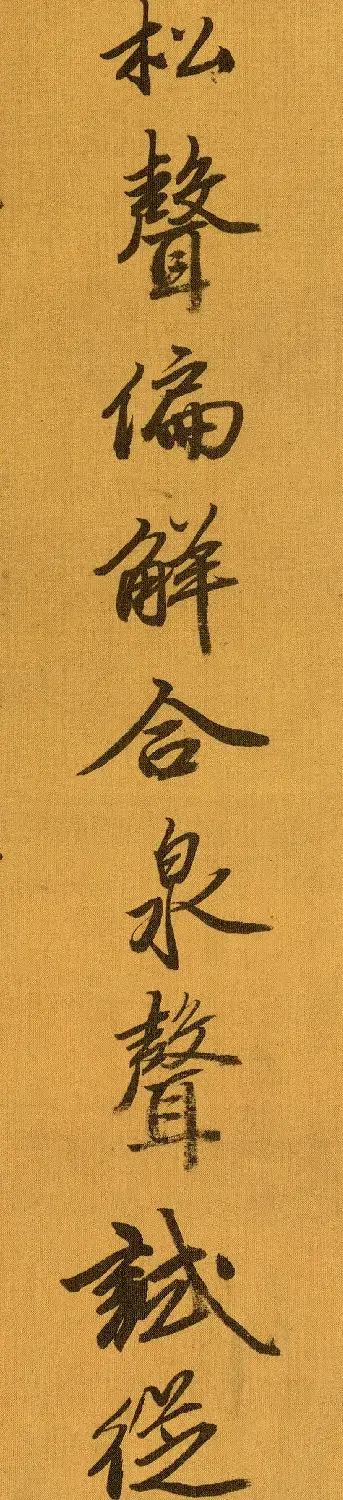 松聲偏解合泉聲試從